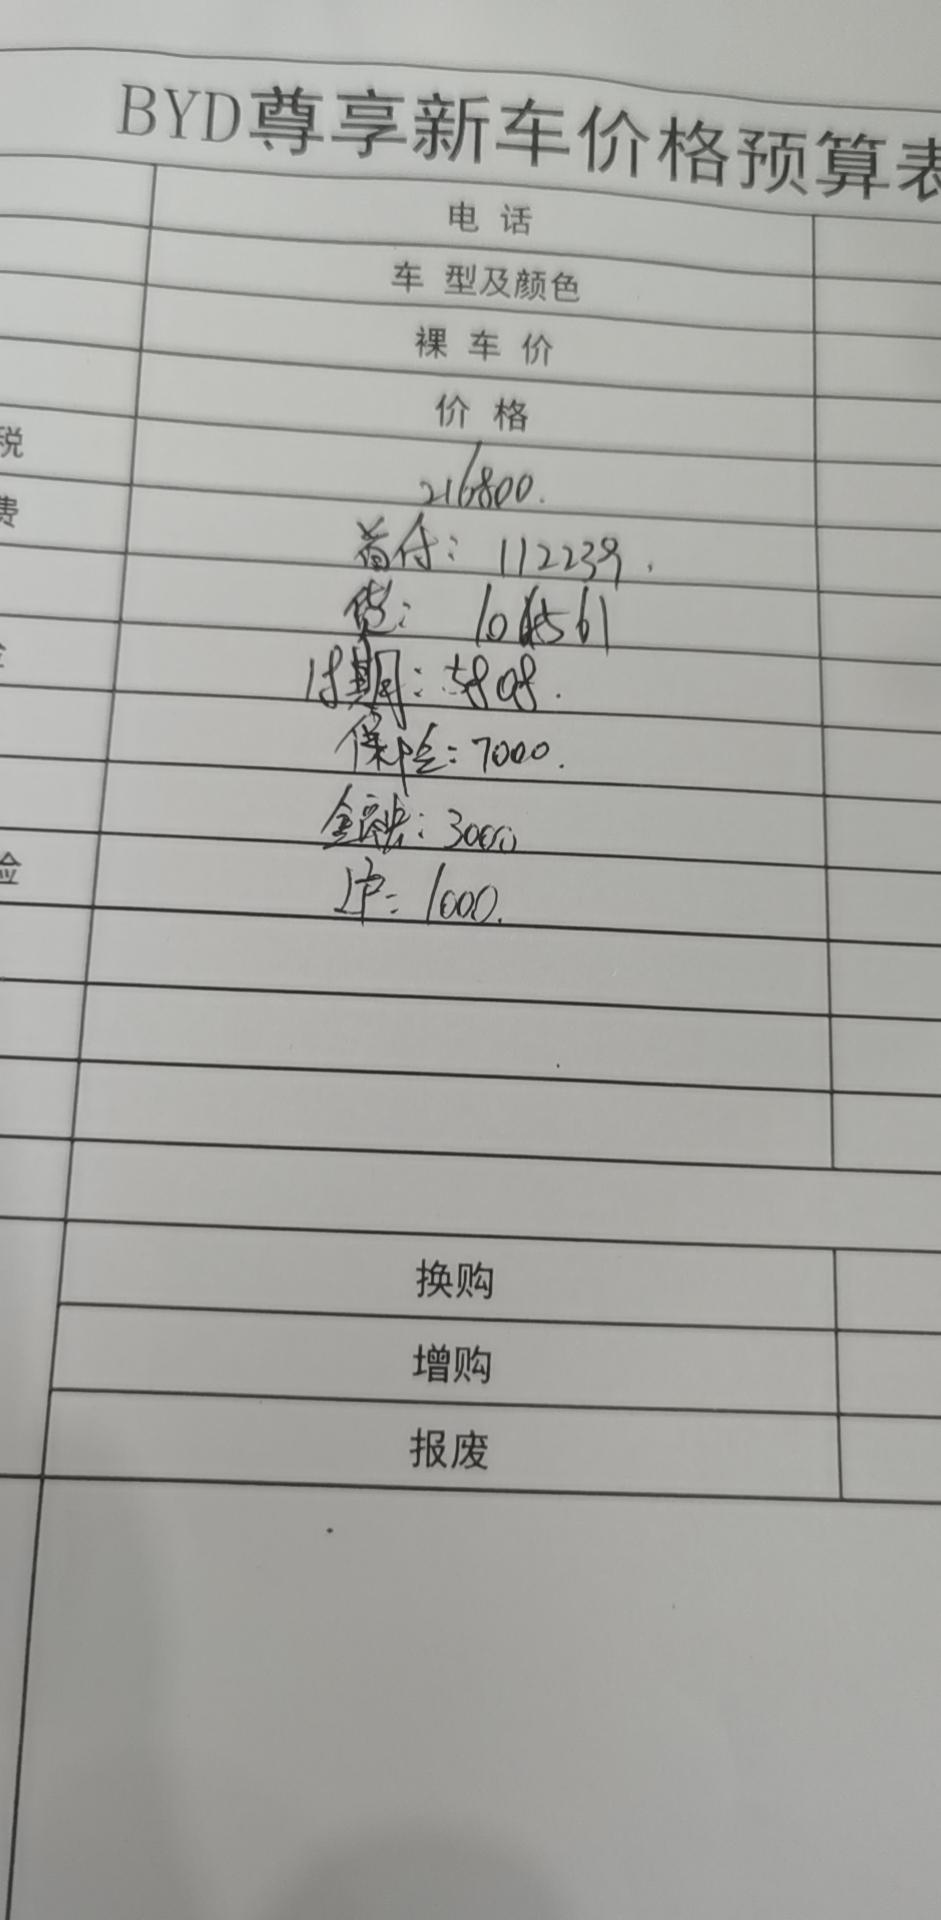 BYD尊享新车价格预算表
电 话
车 型及颜色
裸 车 价
价 格
税
216800.
费
首付: 112239.
贷: 104561
18期: 5808.
保险: 7000.
金融: 3000
沪: 1000.
险
换购
增购
报废